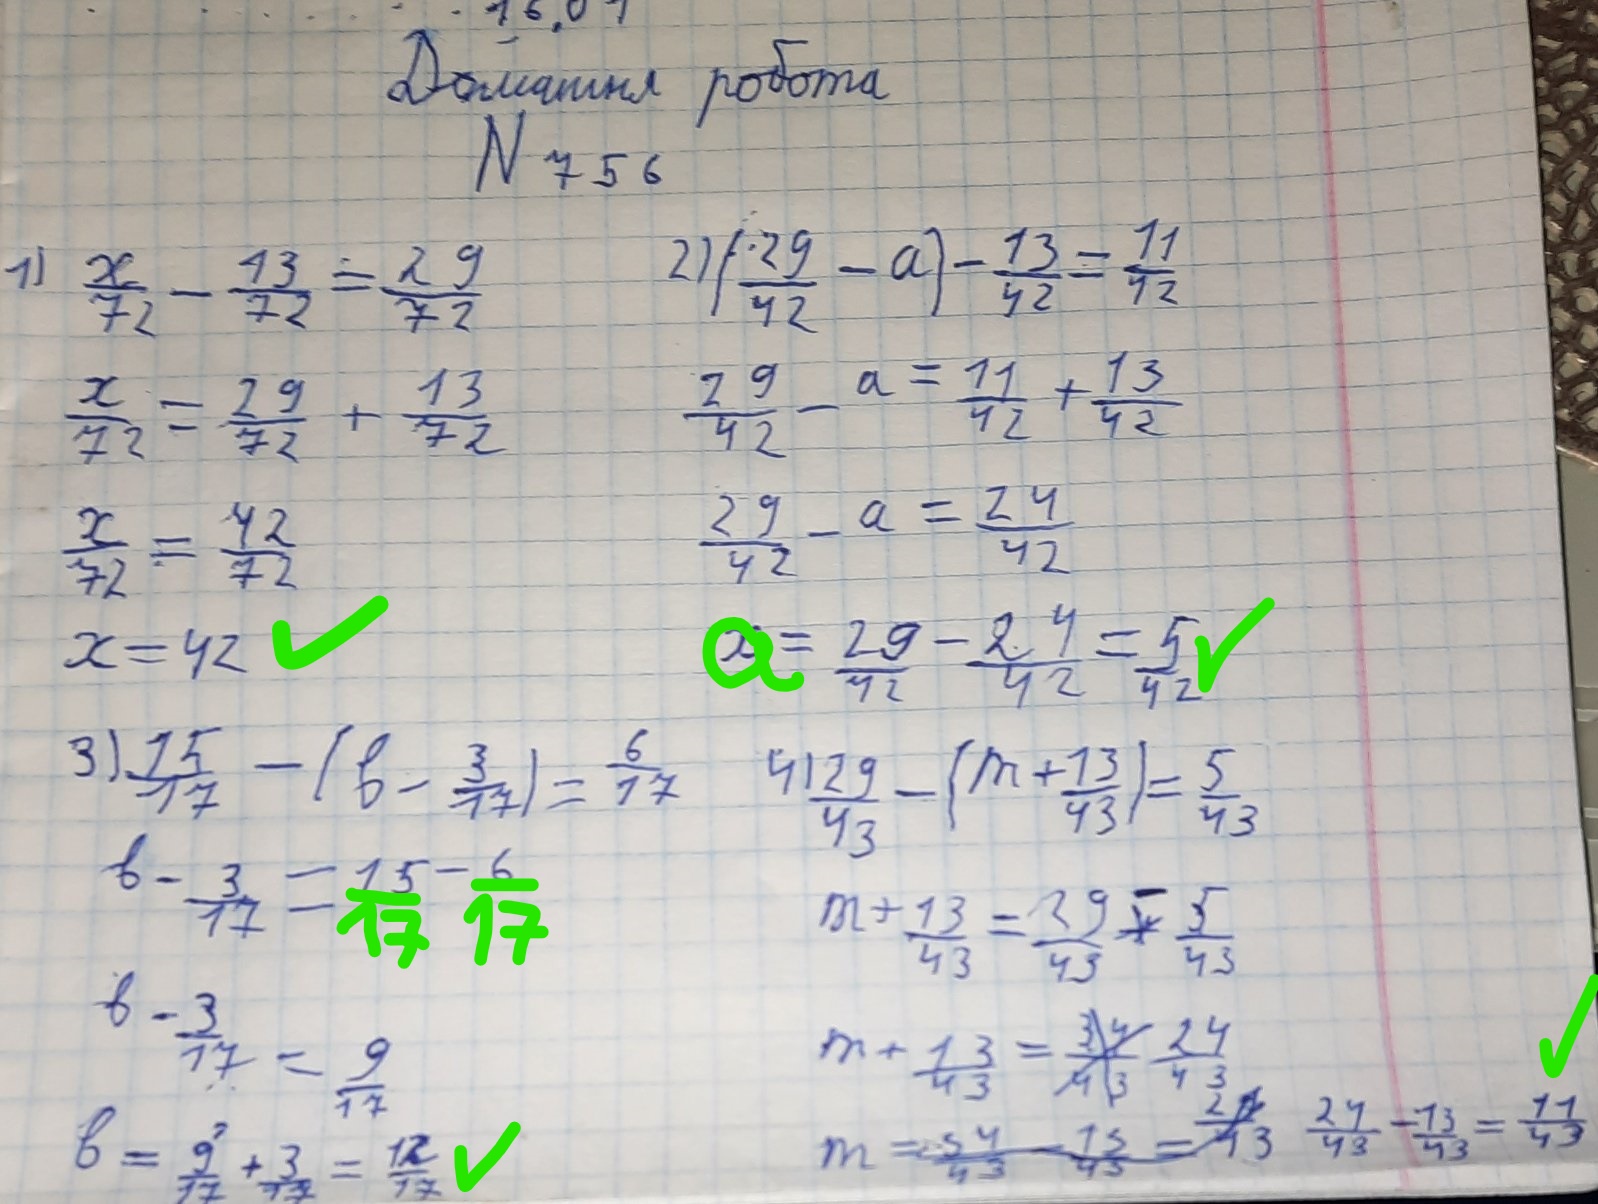 16.01
Домашня робота
N 756
1) x/72 - 13/72 = 29/72
x/72 = 29/72 + 13/72
x/72 = 42/72
x = 42 ✓
2) (29/42 - a) - 13/42 = 11/42
29/42 - a = 11/42 + 13/42
29/42 - a = 24/42
a = 29/42 - 24/42 = 5/42 ✓
3) 15/17 - (b - 3/17) = 6/17
b - 3/17 = 15/17 - 6/17
b - 3/17 = 9/17
b = 9/17 + 3/17 = 12/17 ✓
4) 29/43 - (m + 13/43) = 5/43
m + 13/43 = 29/43 - 5/43
m + 13/43 = 24/43
m = 24/43 - 13/43 = 11/43 ✓